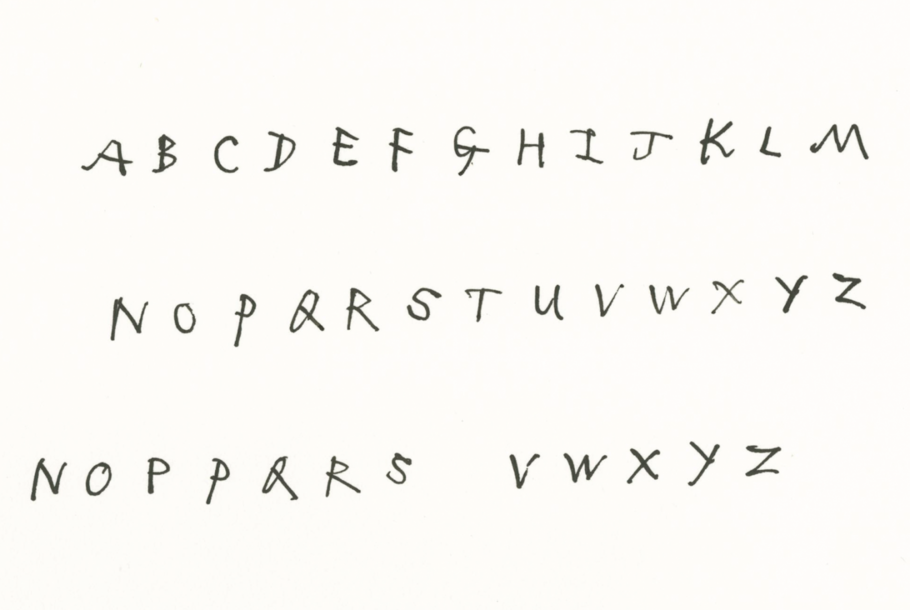 A B C D E F G H I J K L M
N O P Q R S T U V W X Y Z
N O P P Q R S V W X Y Z